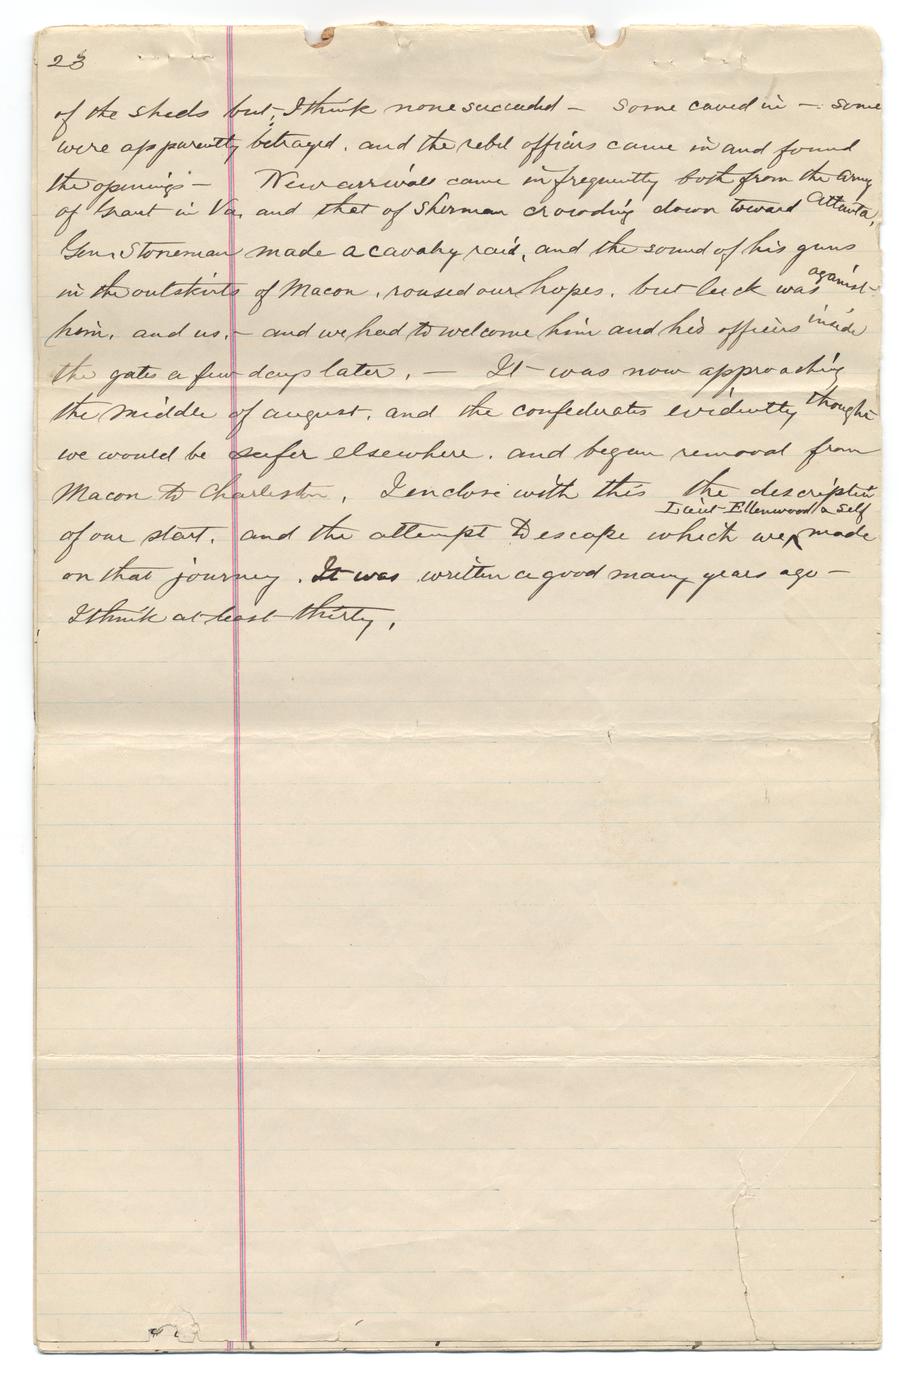 23
of the sheds but, I think none succeeded – some caved in – some
were apparently betrayed, and the rebel officers came in and found
the openings – New arrivals came in frequently both from the army
of Grant in Va, and that of Sherman crowding down toward Atlanta,
Gen. Stoneman made a cavalry raid, and the sound of his guns
in the outskirts of Macon, roused our hopes, but luck was against
him, and us, – and we had to welcome him and his officers inside
the gates a few days later, – It was now approaching
the middle of august, and the confederates evidently thought
we would be safer elsewhere, and began removal from
Macon to Charleston, I enclose with this the description
Lieut Ellenwood & self
of our start, and the attempt to escape which we made
on that journey. It was written a good many years ago –
I think at least thirty,